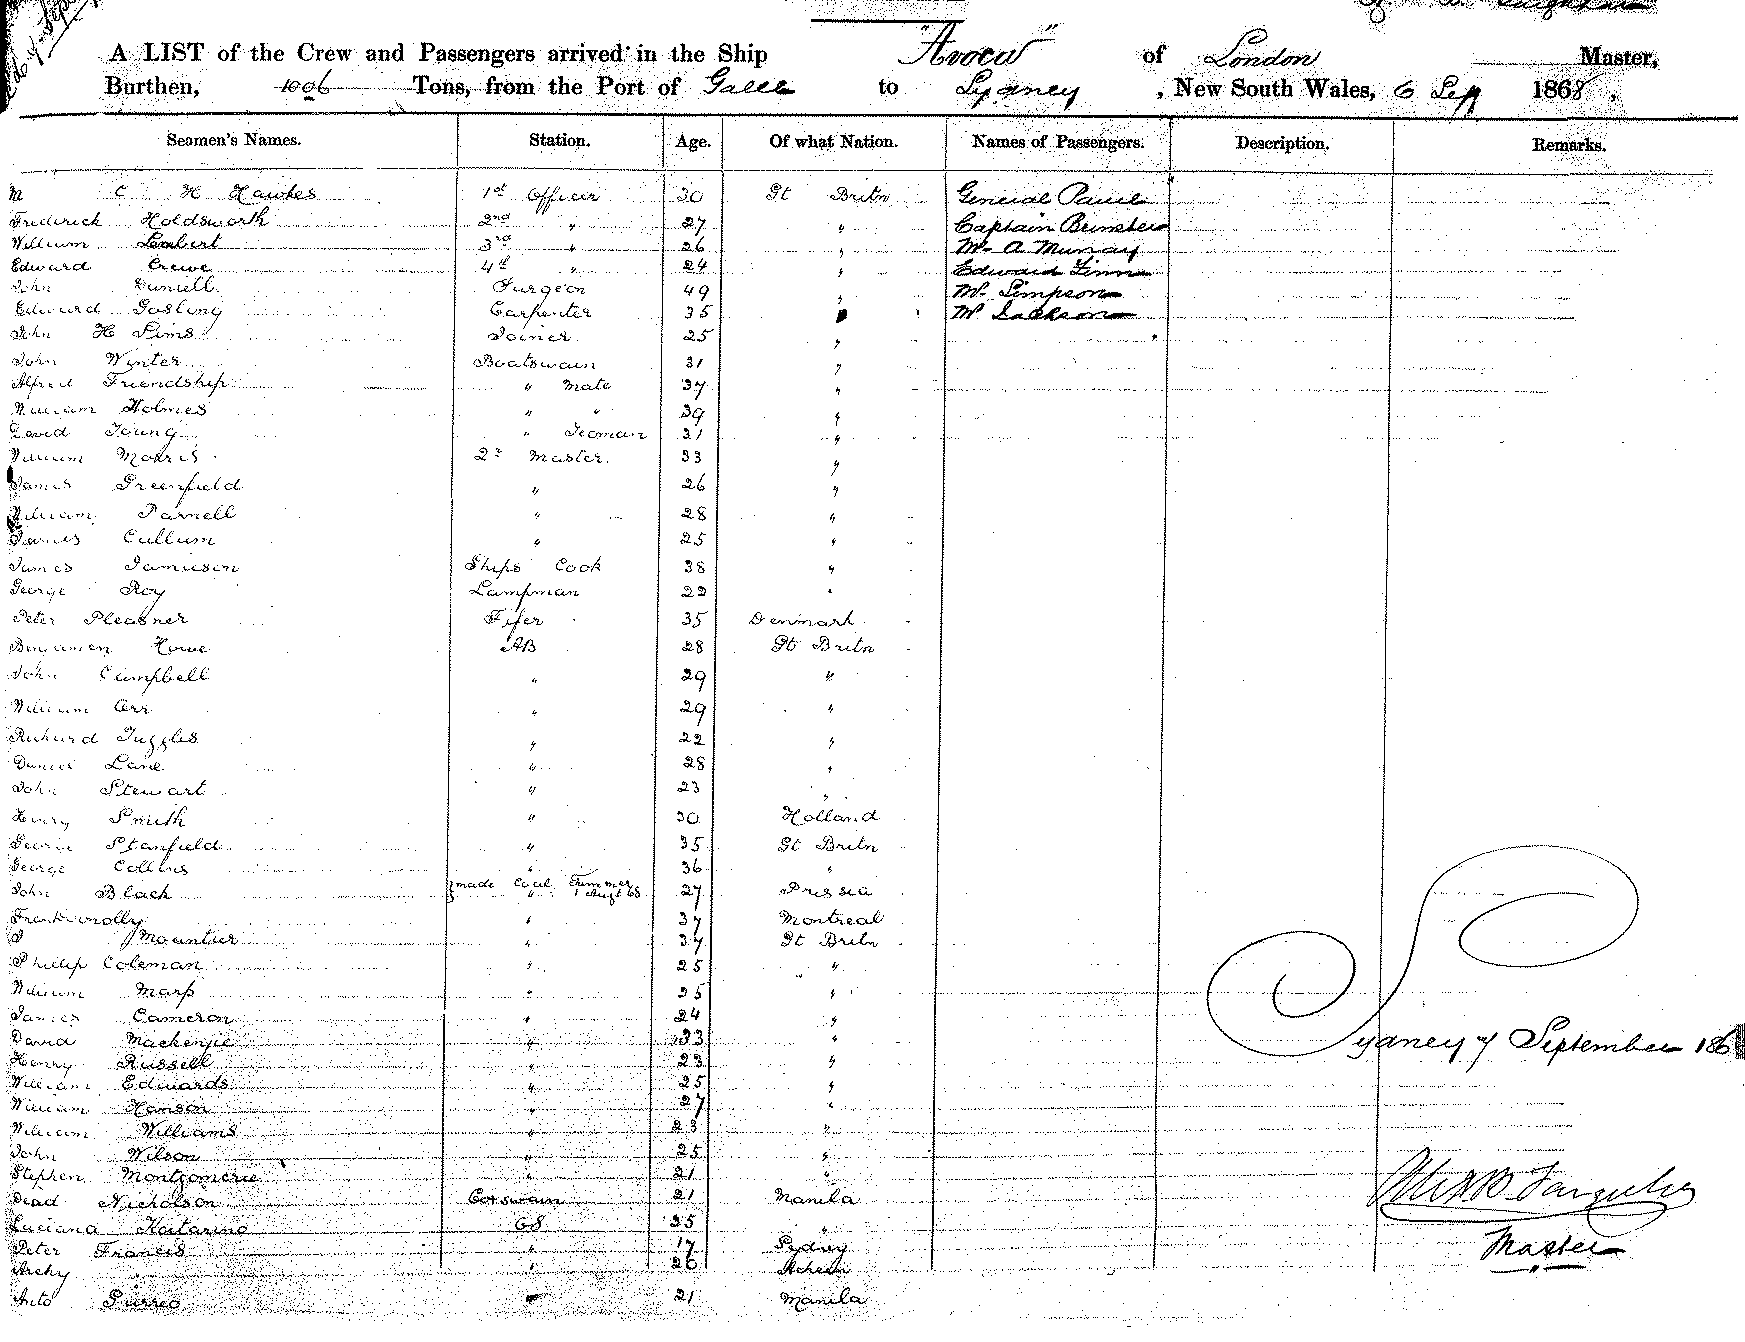 A LIST of the Crew and Passengers arrived in the Ship "Avoca" of London Master,
Burthen, 1006 Tons, from the Port of Galle to Sydney, New South Wales, 6 Sep 1868,
Seamen's Names. Station. Age. Of what Nation. Names of Passengers. Description. Remarks.
C H Hawkes 1st Officer 30 Gt Britn General
Frederick Holdsworth 2nd " 27 " Captain
William Lambert 3rd " 26 " Mr A Murray
Edward Crewe 4th " 24 " Edward
John Surgeon 49 " Mr Simpson
Edward Gosling Carpenter 35 Mr Jackson
John H Sims Joiner 25 "
John Winter Boatswain 31 "
Alfred Friendship " Mate 37 "
William Holmes " " 39 "
David Young " Yeoman 31 "
William Morris 2r Master 33 "
James Greenfield " 26 "
William Parnell " 28 "
James Cullum " 25 "
James Jamieson Ships Cook 38 "
George Roy Lampman 22 "
Peter Fifer 35 Denmark
Benjamen Howe AB 28 Gt Britn
John Campbell " 29 "
William Orr " 29 "
Richard Juggles " 22 "
Daniel Lane " 28 "
John Stewart " 23 "
Henry Smith " 30 Holland
George Stanfield " 35 Gt Britn
George Collins " 36 "
John Black made Coal Trimmer 1 Augt 68 27 Prussia
" 37 Montreal
J Mountier " 37 Gt Britn
Phillip Coleman " 25 "
William " 25 "
James Cameron " 24 "
David Mackenzie " 33 "
Henry Russell " 23 "
William Edwards " 25 "
William Hanson " 27 "
William Williams " 23 "
John Wilson " 25 "
Stephen Montgomerie " 21 "
Nicholson Coxswain 21 Manila
Luciana Katarino GS 35 "
Peter Francis " 17 Sydney
Archy " " 26
Anto 21 Manila
Sydney 7 September 186
Farquhar
Master